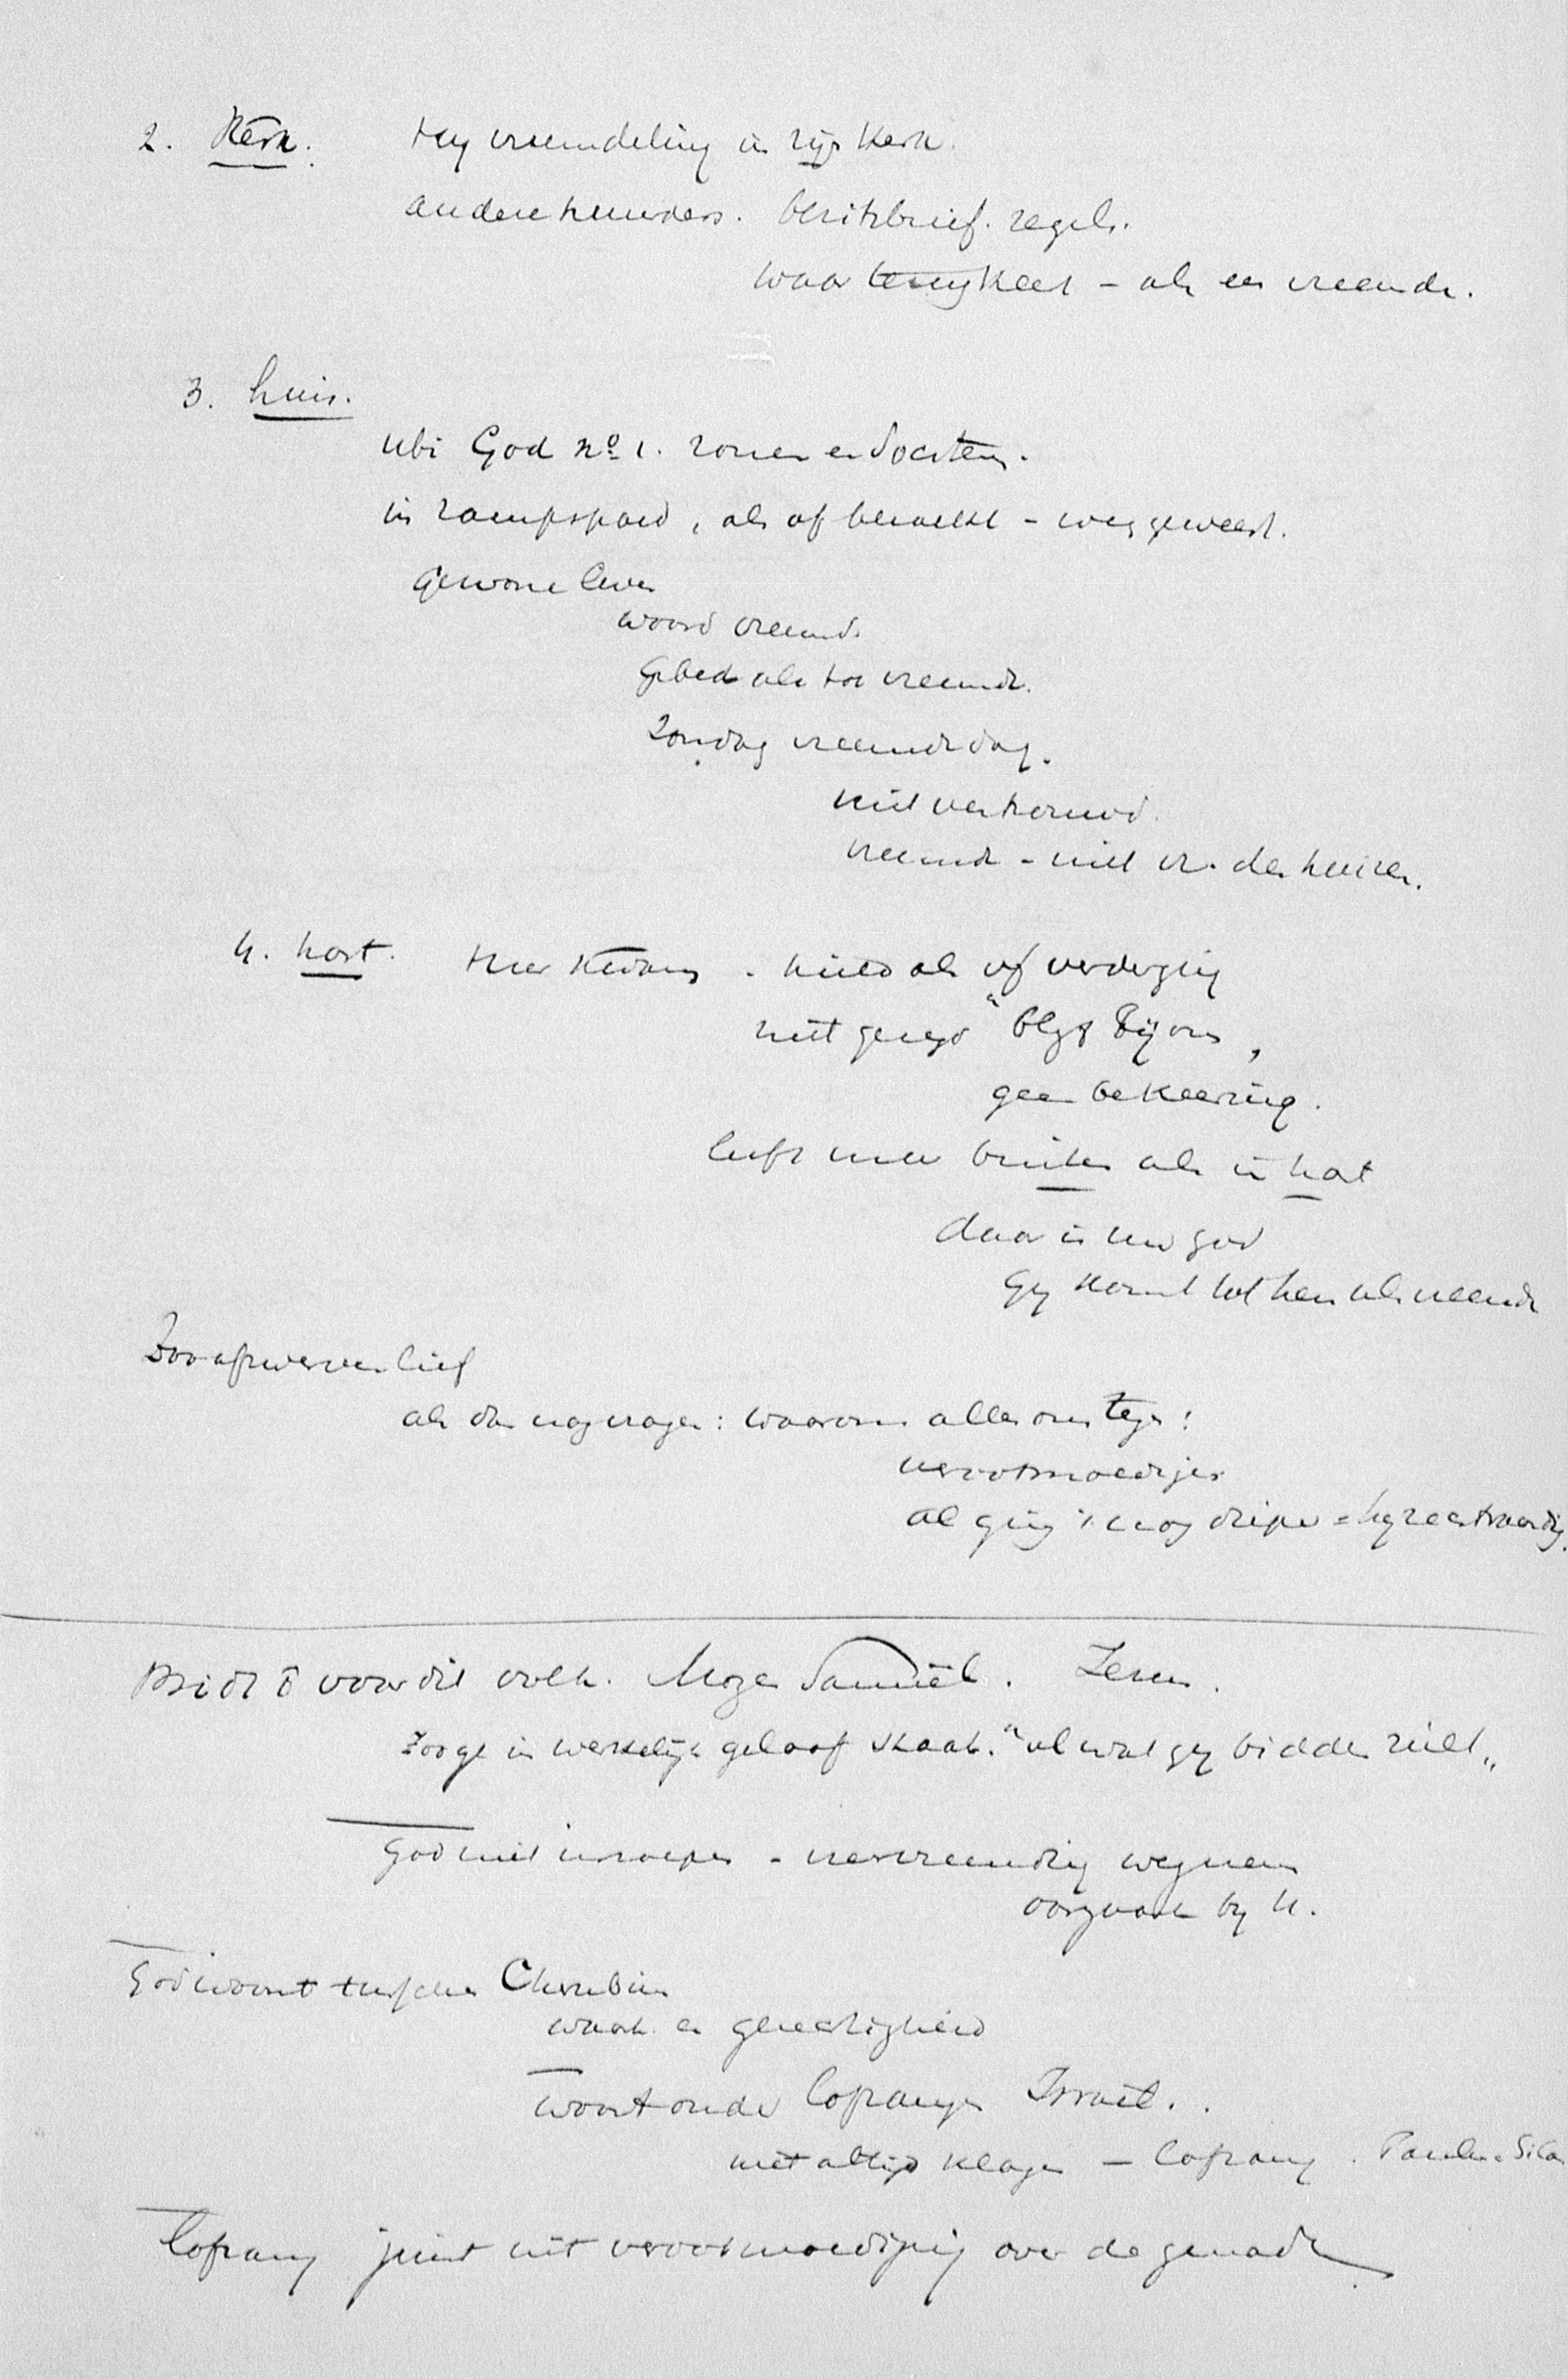 2. Kerk. Hy vreemdeling in zijn Kerk.
andere heerschers. regels.
waar terugkeer – als een vreemde.
3. huis.
ubi God no 1. zonen en dochters.
in rampspoed, als of – weggeweest.
Gewone leven
woord vreemd.
Gebed als tot vreemde.
Zondag vreemde dag.
niet vertrouwd.
vreemde – niet vr. der huizes.
4. hart. Hier – hield als of verdreging
niet gezegd "blyf bij ons„
geen bekeering.
liefst meer buiten als in hart
daar is uw god
Gy komt tot hem als vreemde
lief
als dan nog vragen: waarom alles ons tegen:
verootmoedigen
al ging 't nog dieper = hy rechtvaardig.
Bidt voor dit volk. Mozes Samuël. Jezus.
Zoo ge in werkelijk geloof staat. "al wat gy bidden zult„
God niet inroepen – vervreemding wegnemen
oorzaak by U.
God woont tusschen Cherubim
waarh. en gerechtigheid
woont onder lofzangen Israël.
niet altijd klagen – lofzang. Paulus Silas
Lofzang juist uit verootmoediging over de genade